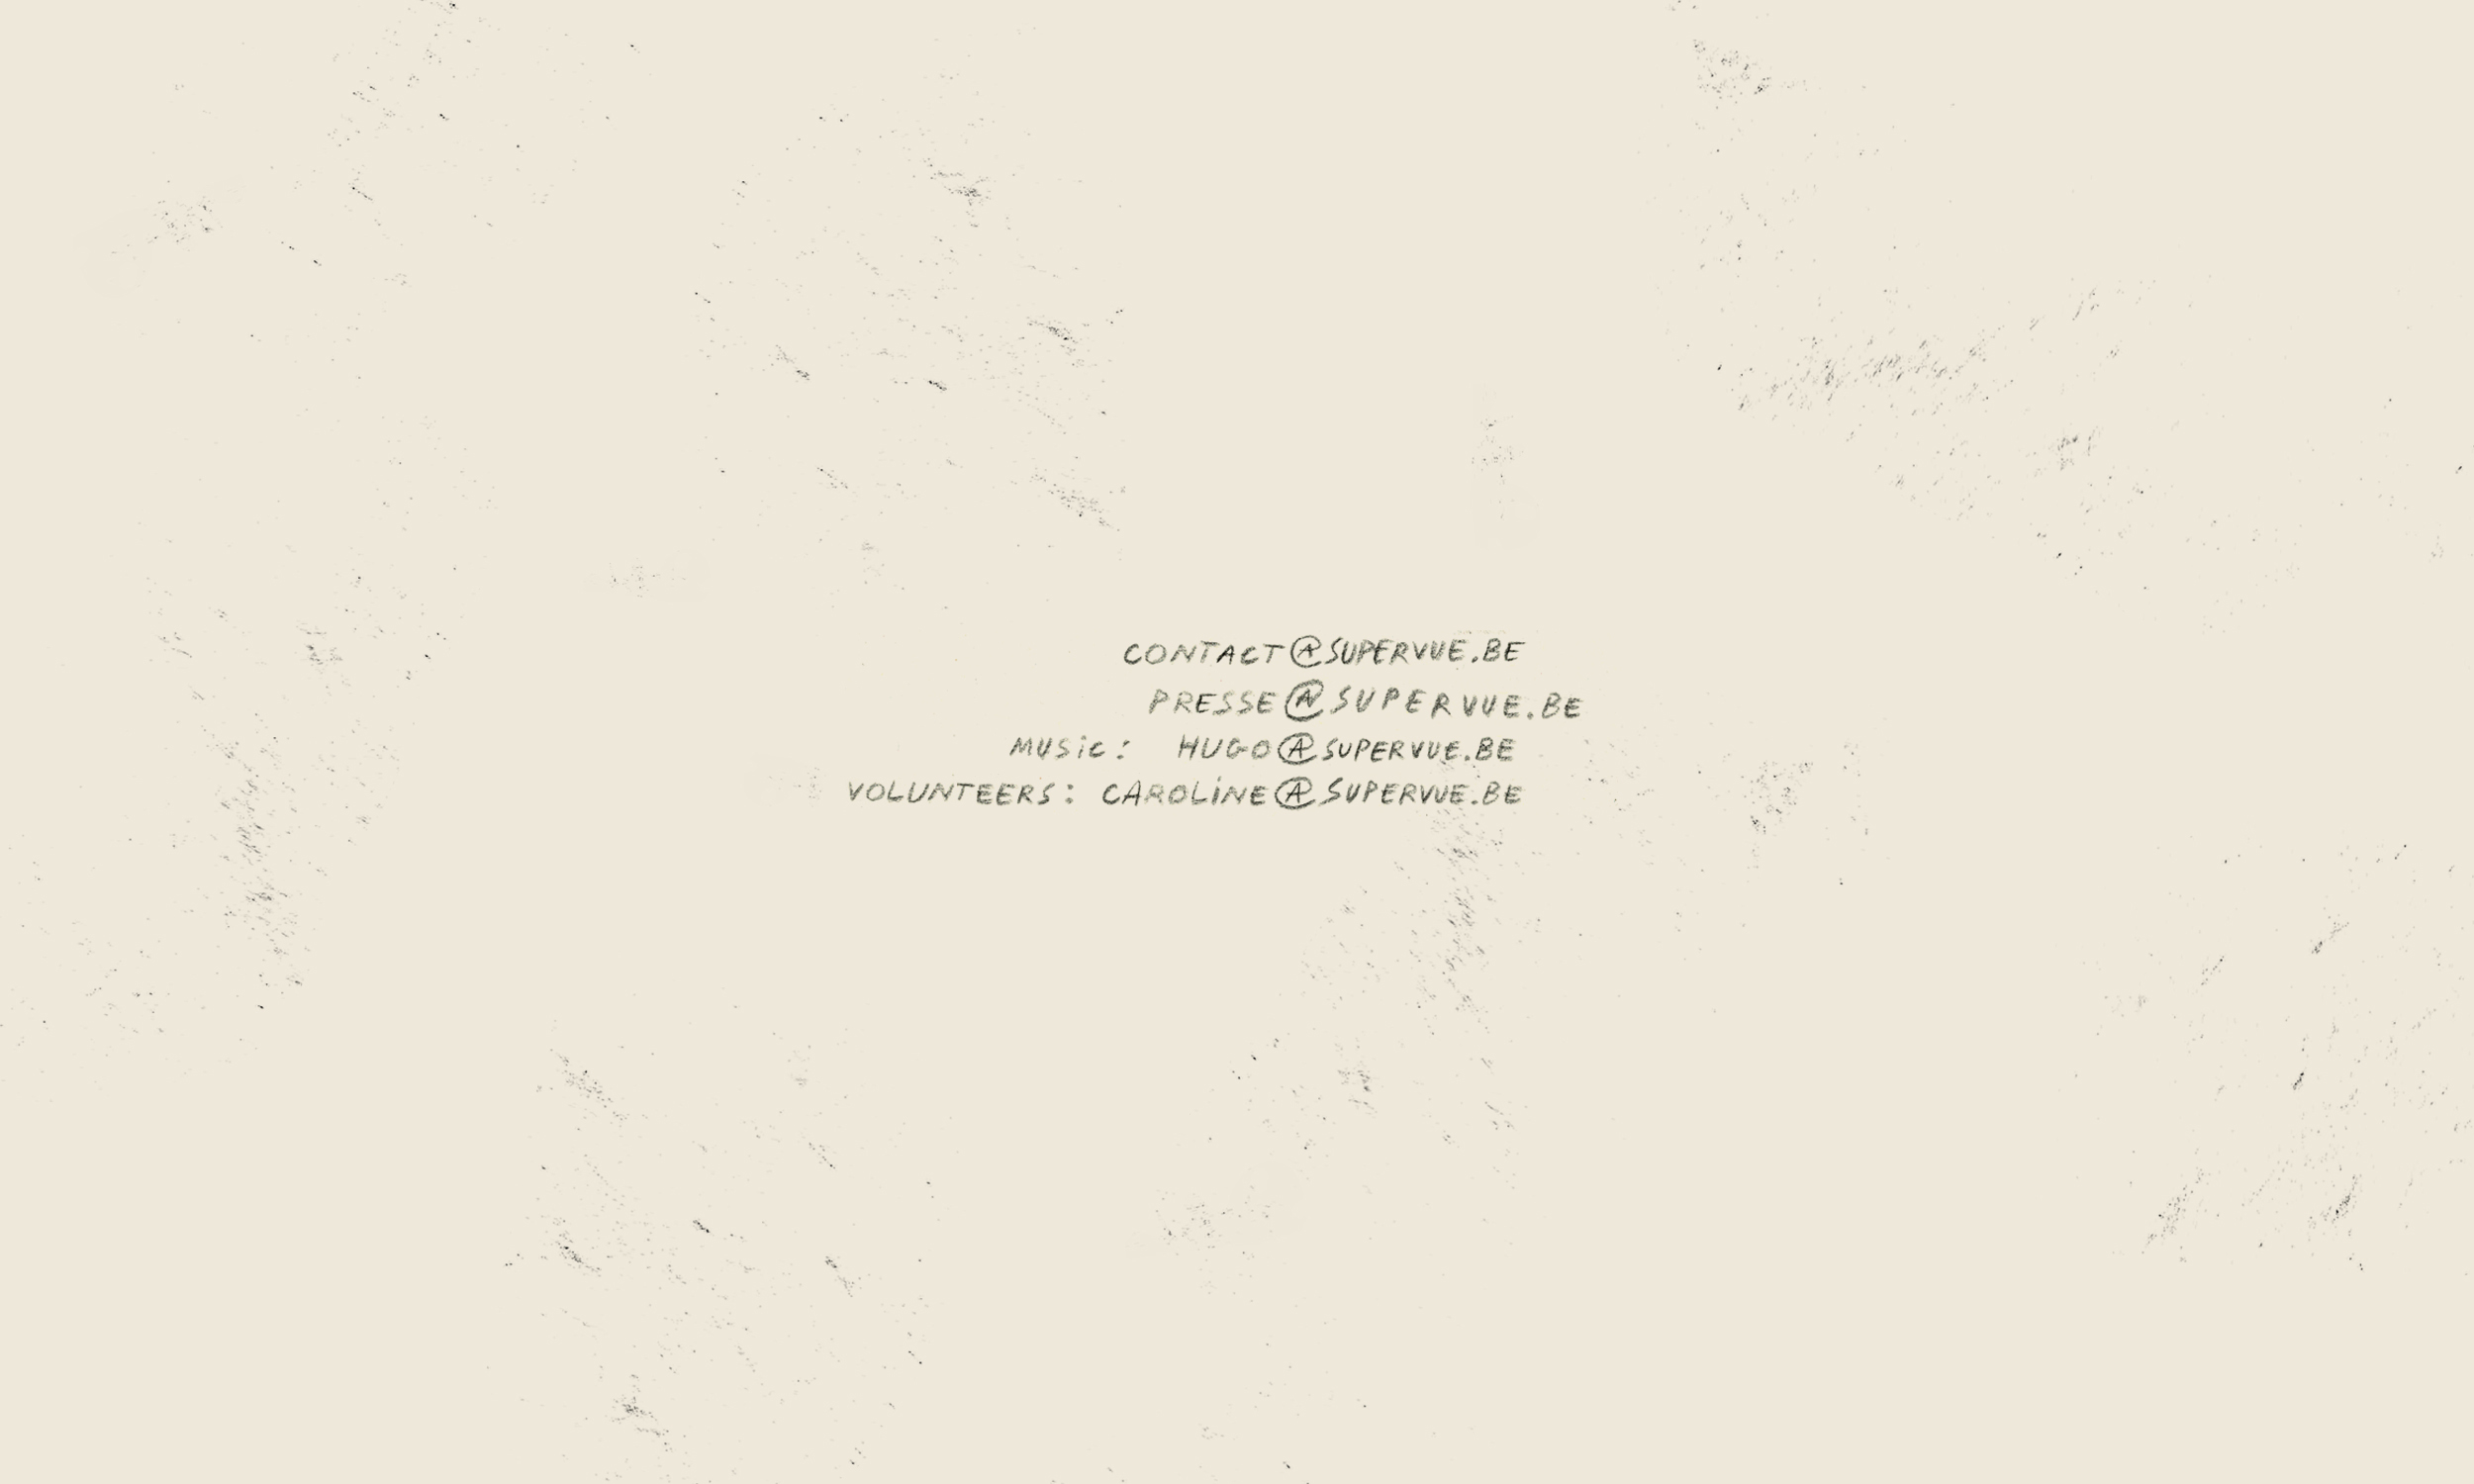 CONTACT@SUPERVUE.BE
PRESSE@SUPERVUE.BE
MUSiC: HUGO@SUPERVUE.BE
VOLUNTEERS: CAROLiNE@SUPERVUE.BE